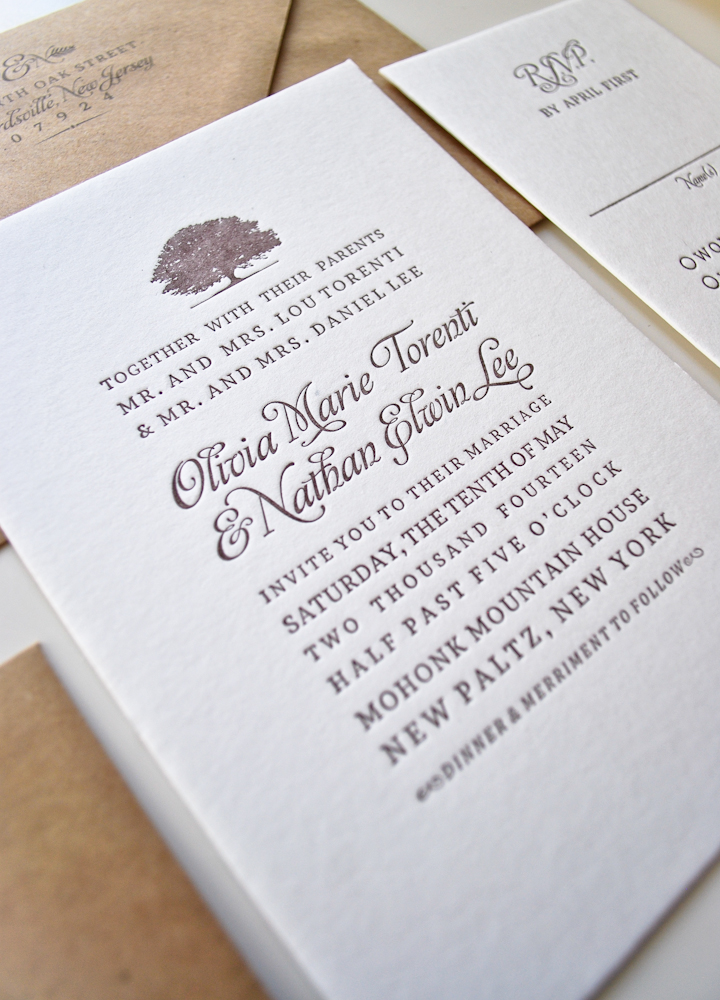 & N
TH OAK STREET
rdsville, New Jersey
07924
TOGETHER WITH THEIR PARENTS
MR. AND MRS. LOU TORENTI
& MR. AND MRS. DANIEL LEE
Olivia Marie Torenti
& Nathan Elwin Lee
INVITE YOU TO THEIR MARRIAGE
SATURDAY, THE TENTH OF MAY
TWO THOUSAND FOURTEEN
HALF PAST FIVE O'CLOCK
MOHONK MOUNTAIN HOUSE
NEW PALTZ, NEW YORK
DINNER & MERRIMENT TO FOLLOW
RSVP.
BY APRIL FIRST
Name(s)